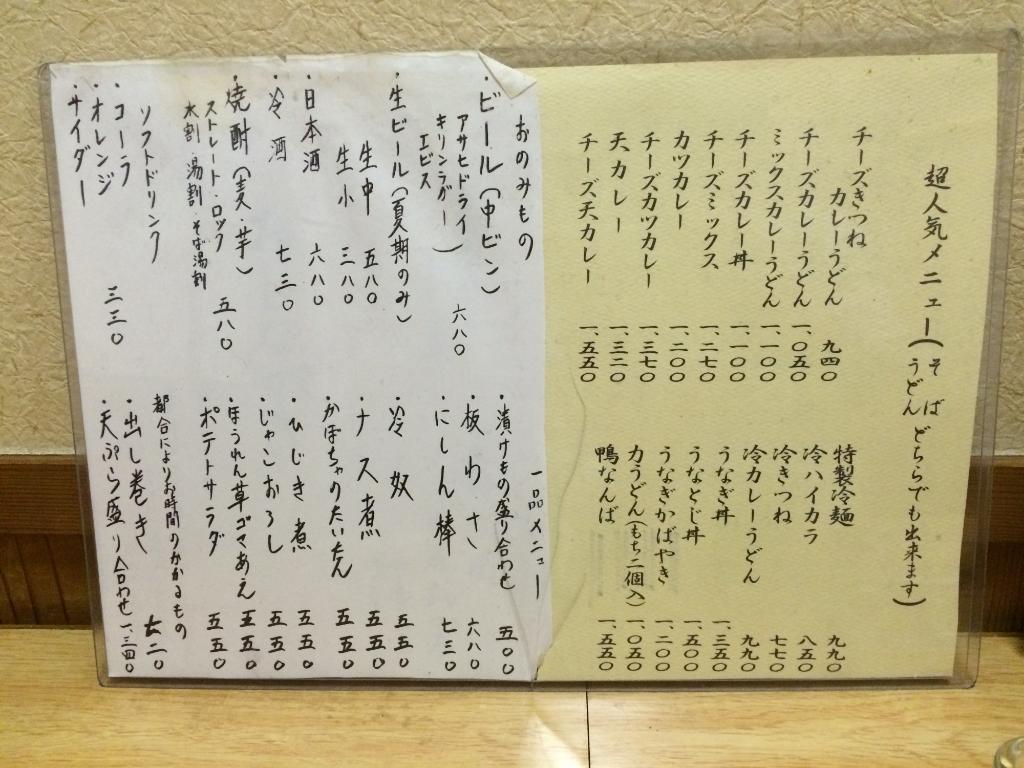 超人気メニュー(そば うどん どちらでも出来ます)
チーズきつね
カレーうどん 九四〇
チーズカレーうどん 一、〇五〇
ミックスカレーうどん 一、一〇〇
チーズカレー丼 一、一〇〇
チーズミックス 一、二七〇
カツカレー 一、二〇〇
チーズカツカレー 一、三七〇
天カレー 一、三二〇
チーズ天カレー 一、五五〇
特製冷麺 九九〇
冷ハイカラ 八五〇
冷きつね 七七〇
冷カレーうどん 九九〇
うなぎ丼 一、三五〇
うなとじ丼 一、五〇〇
うなぎかばやき 一、二〇〇
力うどん(もち二個入) 一、〇五〇
鴨なんば 一、五五〇
おのみもの
・ビール(中ビン)
アサヒドライ
キリンラガー
エビス) 六八〇
・生ビール(夏期のみ)
生中 五八〇
生小 三八〇
・日本酒 六八〇
・冷酒 七三〇
・焼酎(麦・芋) 五八〇
ストレート・ロック
水割・湯割・そば湯割
ソフトドリンク
・コーラ
・オレンジ
・サイダー 三三〇
一品メニュー
・漬けもの盛り合わせ 五〇〇
・板わさ 六八〇
・にしん棒 七三〇
・冷奴 五五〇
・ナス煮 五五〇
・かぼちゃのたいたん 五五〇
・ひじき煮 五五〇
・じゃこおろし 五五〇
・ほうれん草ゴマあえ 五五〇
・ポテトサラダ 五五〇
都合によりお時間のかかるもの
・出し巻き 七二〇
・天ぷら盛り合わせ 一、三四〇